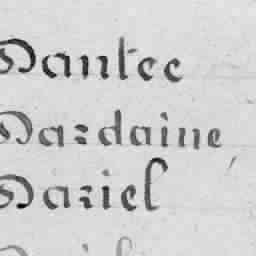 Dantee
Dardaine
Dariel